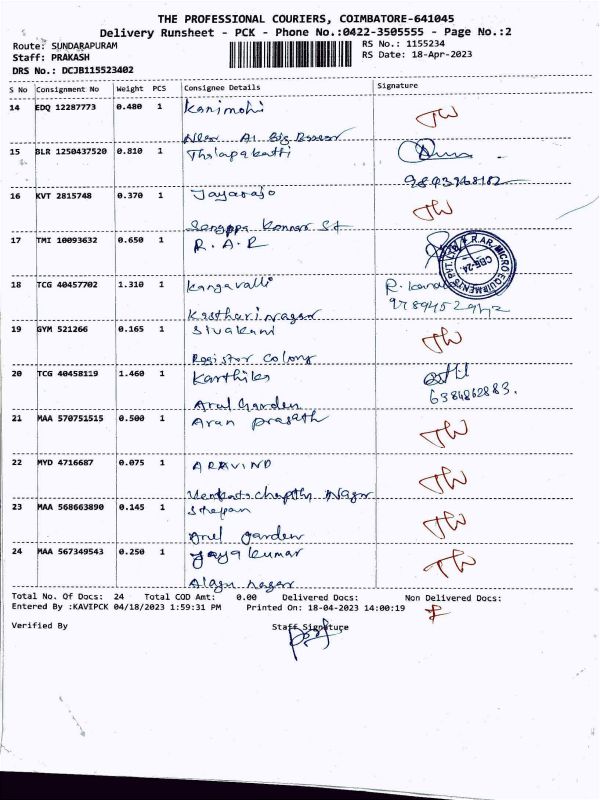 THE PROFESSIONAL COURIERS, COIMBATORE-641045
Delivery Runsheet - PCK - Phone No.:0422-3505555 - Page No.:2
Route: SUNDARAPURAM RS No.: 1155234
Staff: PRAKASH RS Date: 18-Apr-2023
DRS No.: DCJB115523402
S No Consignment No Weight PCS Consignee Details Signature
14 EDQ 12287773 0.480 1 Kanimohi TW
Near A1 Big
15 BLR 1250437520 0.810 1 Thalapakatti
9843968182
16 KVT 2815748 0.370 1 Jayaraj TW
Sengappa Konnar St
17 TMI 10093632 0.650 1 R.A.R
R.AR. MICRO EQUIPMENTS PVT. LTD. CBE-24
18 TCG 40457702 1.310 1 Kangavalli R.
Kasthari nagar
19 GYM 521266 0.165 1 Sivakami TW
Registor Colony
20 TCG 40458119 1.460 1 Karthika
Arul Garden 6384862883.
21 MAA 570751515 0.500 1 Arun prasath TW
22 MYD 4716687 0.075 1 ARAVIND TW
Nagar
23 MAA 568663890 0.145 1 Stepan TW
Arul garden
24 MAA 567349543 0.250 1 Jaya kumar TW
Alagu nagar
Total No. Of Docs: 24 Total COD Amt: 0.00 Delivered Docs: Non Delivered Docs:
Entered By :KAVIPCK 04/18/2023 1:59:31 PM Printed On: 18-04-2023 14:00:19
Verified By Staff Signature